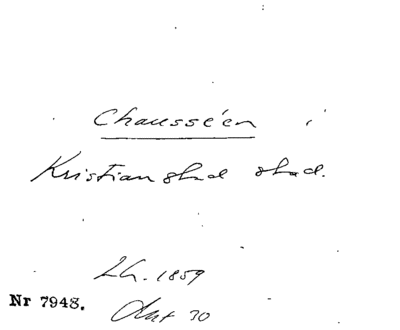 Chausséen i
Kristianstad stad.
LG. 1859
Nr 7948. Okt 30